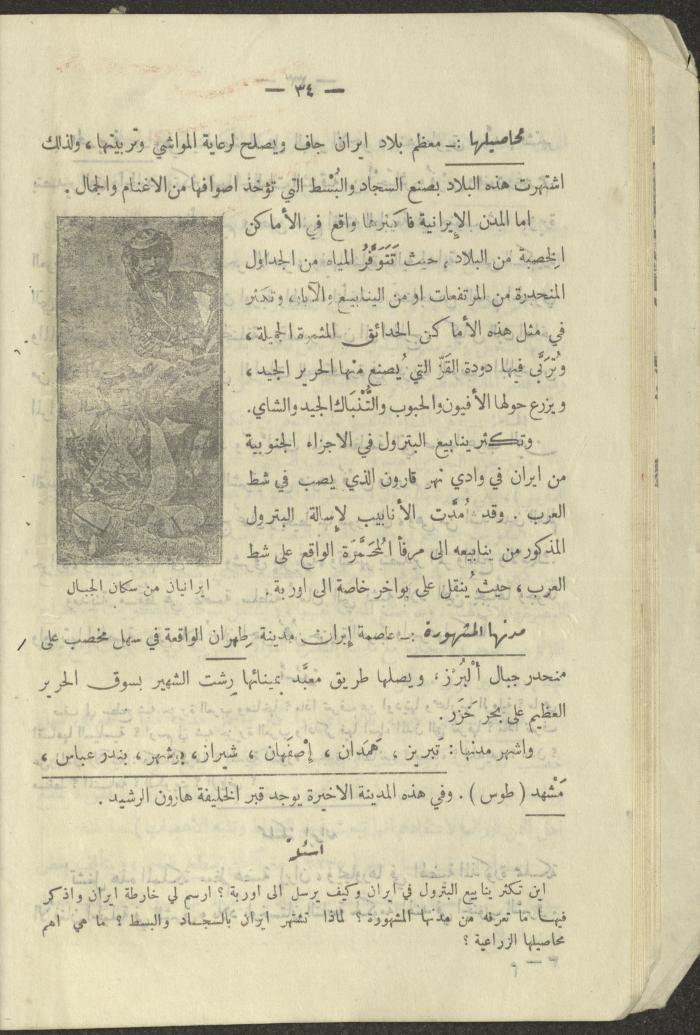 — ٣٤ —
محاصيلها :ـ معظم بلاد ايران جاف ويصلح لرعاية المواشي وتربيتها ، ولذلك
اشتهرت هذه البلاد بصنع السجاد والبُسْط التي تؤخذ اصوافها من الاغنام والجمال .
اما المدن الإيرانية فاكثرها واقع في الأماكن
الخِصْبة من البلاد ، حيث تَتَوَفَّرُ المياه من الجداول
المنحدرة من المرتفعات او من الينابيع والآبار ، وتكثر
في مثل هذه الأماكن الحدائق المثمرة الجميلة ،
وتُرَبَّى فيها دودة القَزّ التي يُصنع منها الحرير الجيد ،
ويزرع حولها الأفيون والحبوب والتُّنْبَاك الجيد والشاي .
وتكثر ينابيع البترول في الاجزاء الجنوبية
من ايران في وادي نهر قارون الذي يصب في شط
العرب . وقد مُدَّت الأنابيب لإسالة البترول
المذكور من ينابيعه الى مرفأ المُحَمَّرَة الواقع على شط
العرب ، حيث يُنقل على بواخر خاصة الى اوربة .
ايرانيان من سكان الجبال
مدنها المشهورة :ـ عاصمة إيران مدينة طِهران الواقعة في سهل مخصب على
منحدر جبال أَلْبُرْز ، ويصلها طريق معبَّد بمينائها رشت الشهير بسوق الحرير
العظيم على بحر خَزَر .
واشهر مدنها : تَبريز ، هَمَدَان ، إِصْفَهان ، شيراز ، بوشهر ، بندر عباس ،
مَشْهد ( طوس ) . وفي هذه المدينة الاخيرة يوجد قبر الخليفة هارون الرشيد .
اسئلة
اين تكثر ينابيع البترول في ايران وكيف يرسل الى اوربة ؟ ارسم لي خارطة ايران واذكر
فيها ما تعرفه من مدنها المشهورة ؟ لماذا تشتهر ايران بالسجاد والبسط ؟ ما هي اهم
محاصيلها الزراعية ؟